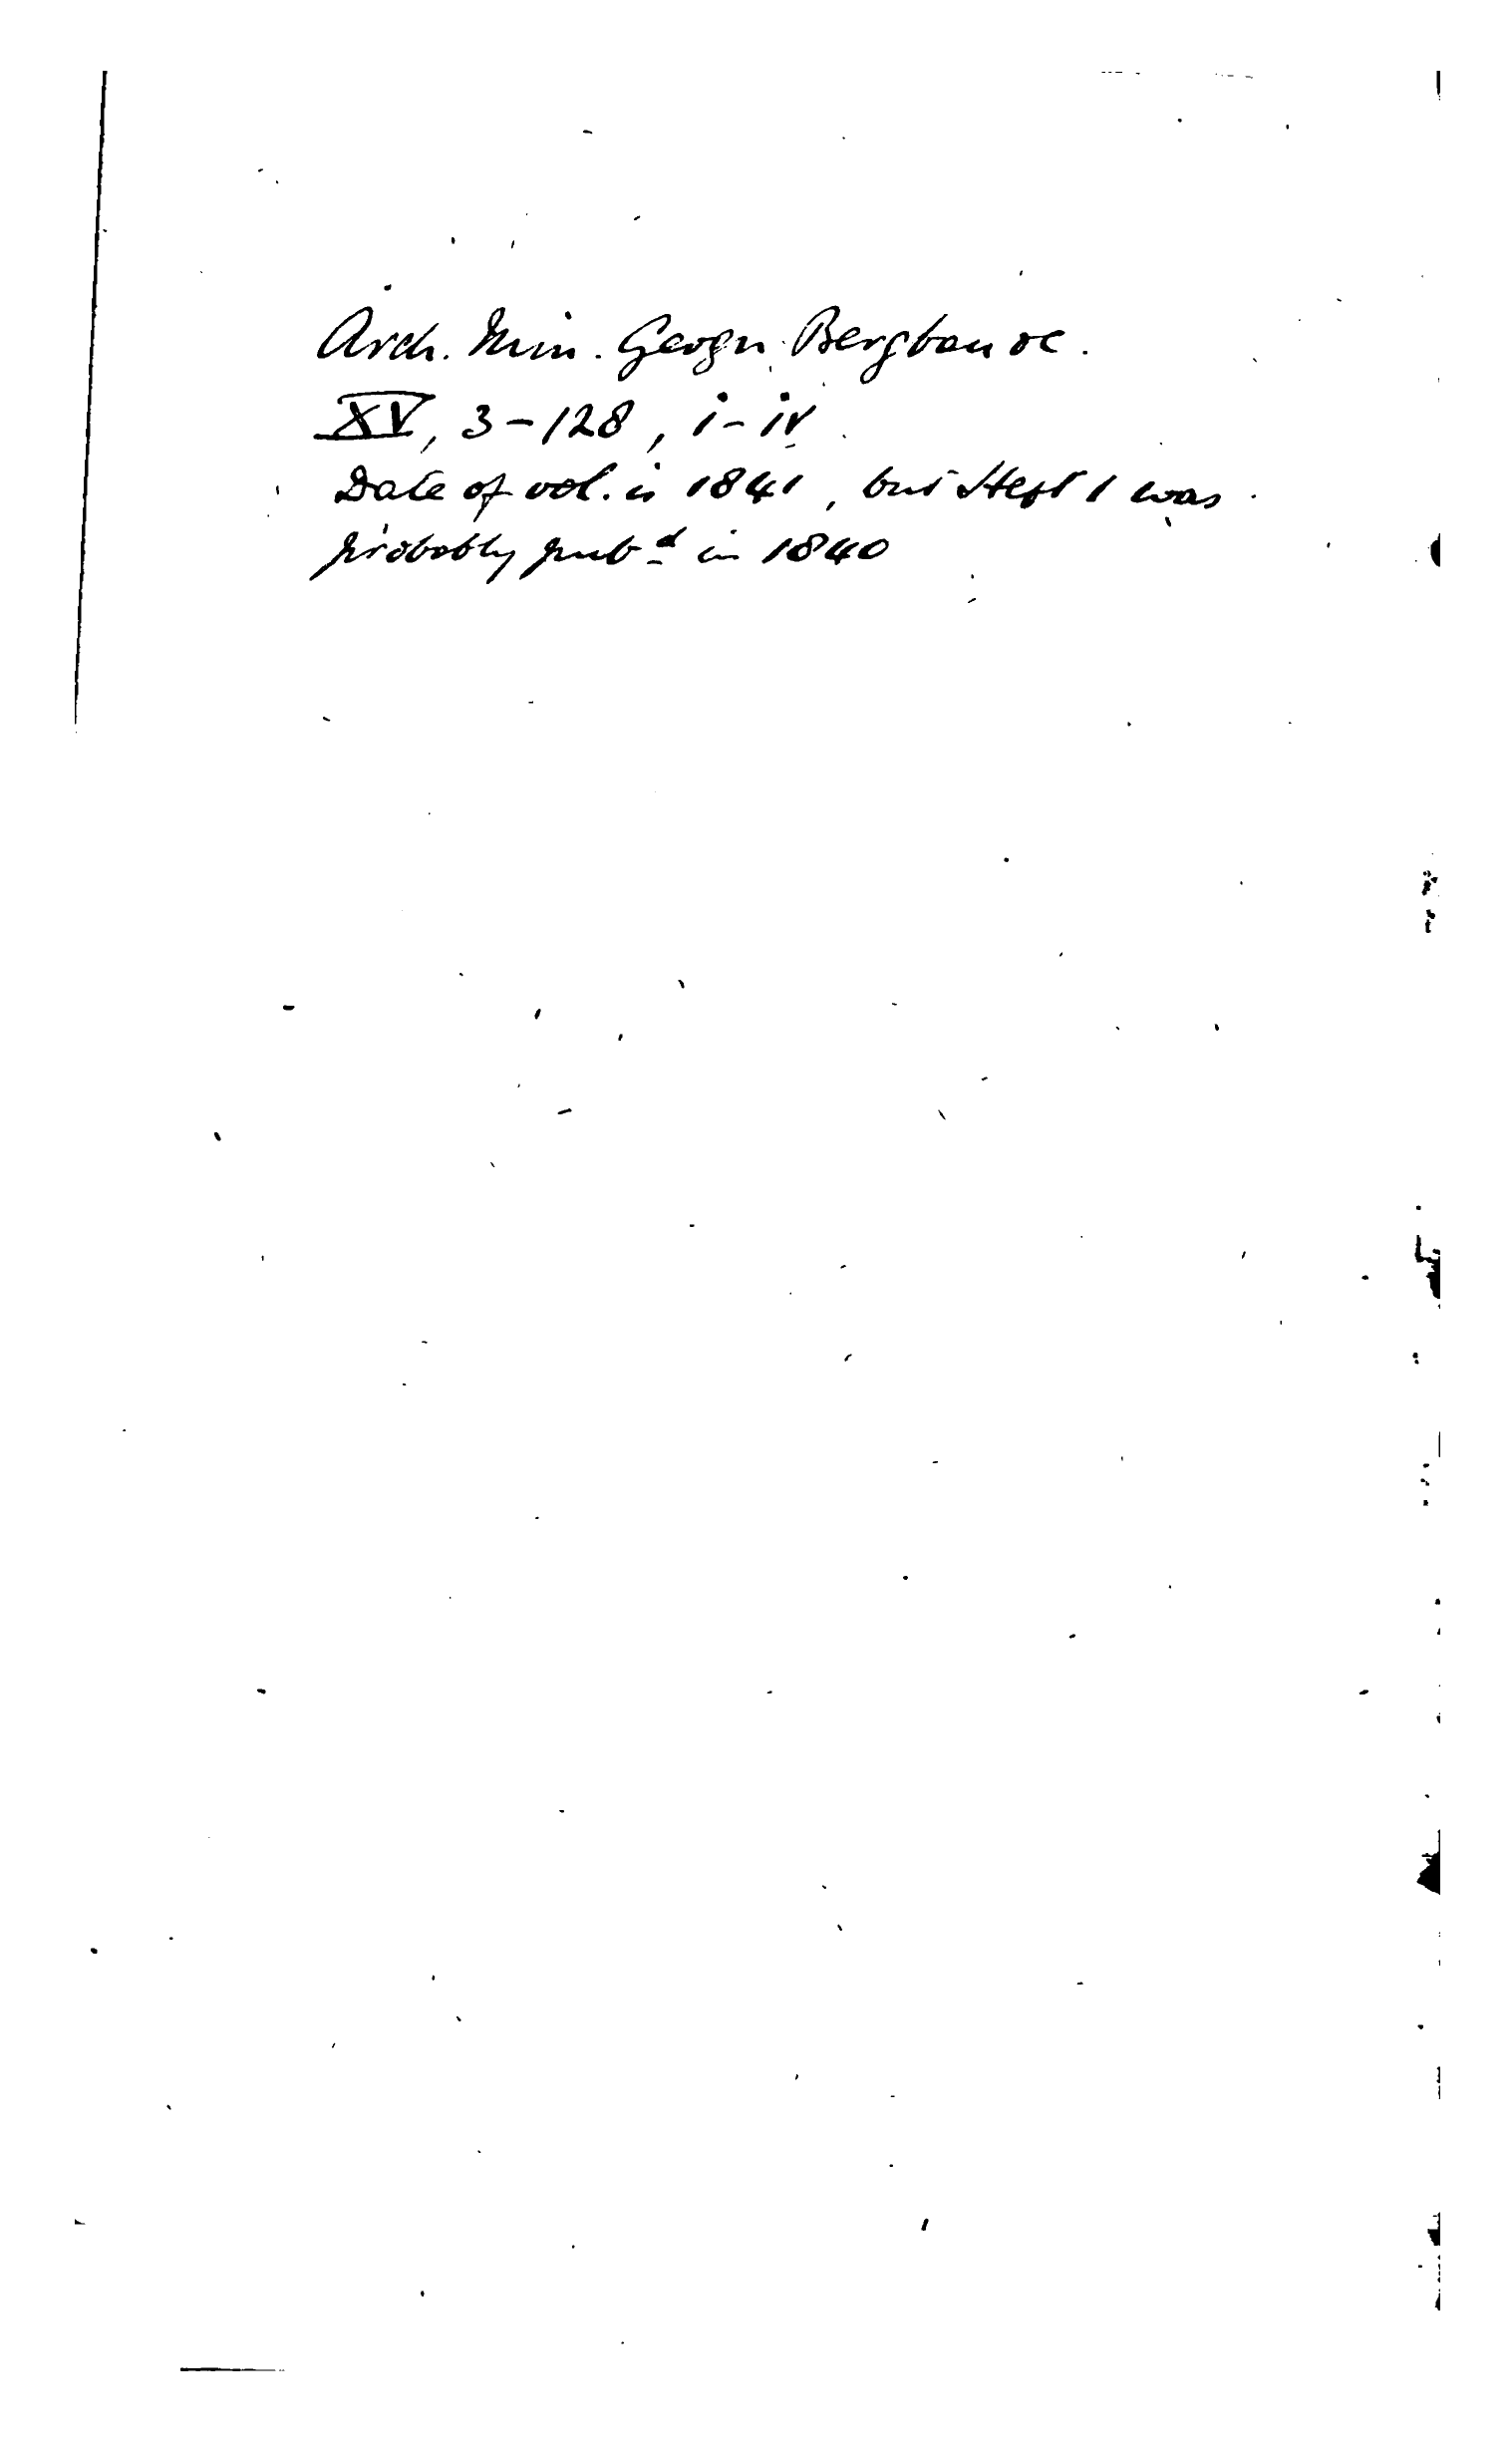 Arch. Min. Geogn. Bergbau &c.
XV, 3-128, i-iv
Date of vol. is 1841, but Heft 1 was
probably pubd in 1840